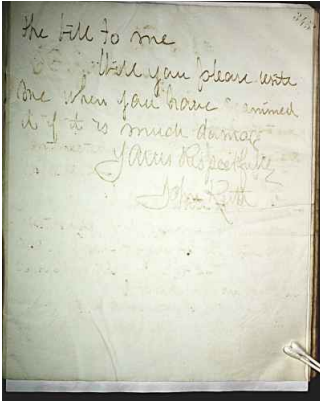 345
the bill to me
Will you please write
me when you have examined
it if it is much damage
Yours Respectfully
John